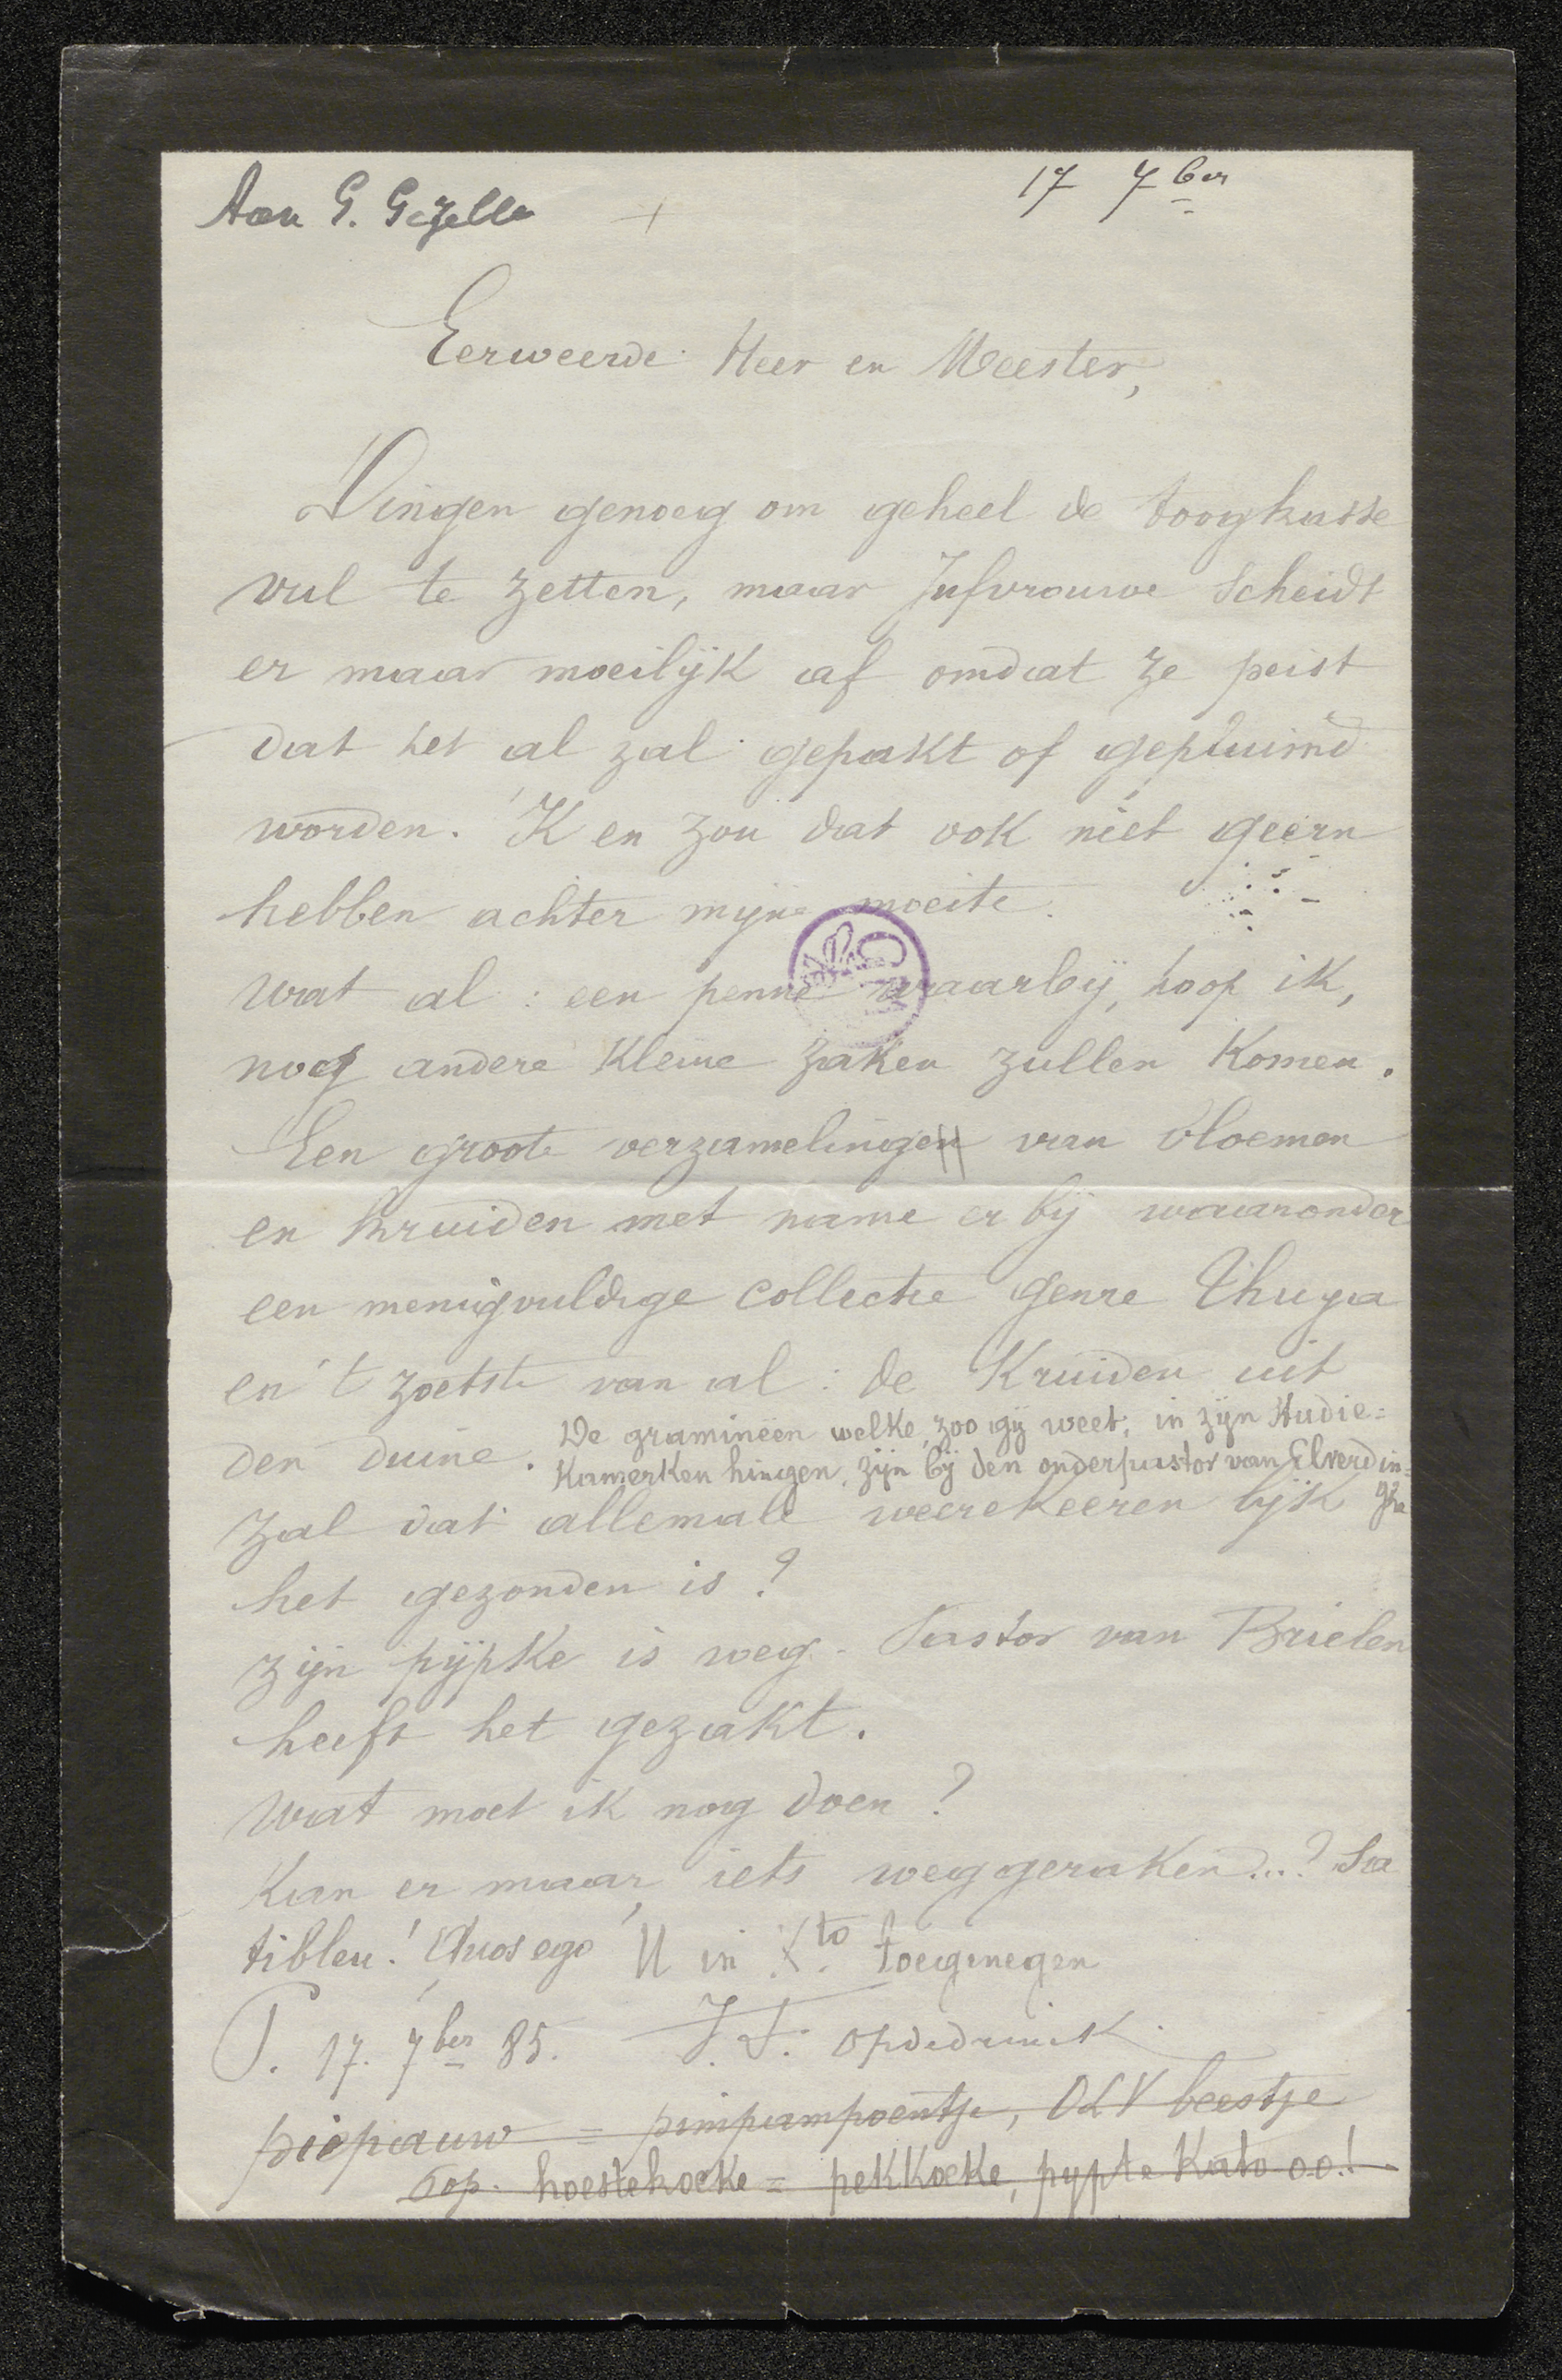 Aan G. Gezelle + 17 7ber
Eerweerde Heer en Meester,
Dingen genoeg om geheel de toogkasse
vul te zetten, maar Jufvrouwe scheidt
er maar moeilijk af omdat ze peist
dat het al zal gepakt of gepluimd
worden. 'K en zou dat ook niet geern
hebben achter mijne moeite.
Wat al : een penne waarbij, hoop ik,
nog andere kleine zaken zullen komen.
Een groote verzamelingen van bloemen
en kruiden met name er bij waaronder
een menigvuldige collectie genre Thuya
en 't zoetste van al : de kruiden uit
den duine. De gramineën welke, zoo gij weet, in zijn studie=
kamerken hingen, zijn bij den onderpastor van Elverdin=
ghe
Zal dat allemale weerekeeren lijk
het gezonden is ?
Zijn pijpke is weg - Pastor van Brielen
heeft het gezakt.
Wat moet ik nog doen ?
Kan er maar iets weggeraken...? Sa
tibleu! Quos ego U in X.to toegenegen
P. 17. 7ber 85. J.S. Opdedrinck
piepauw = pimpampoentje, OLV beestje
hoestekoeke = pekkoeke, pypte Kato oo!